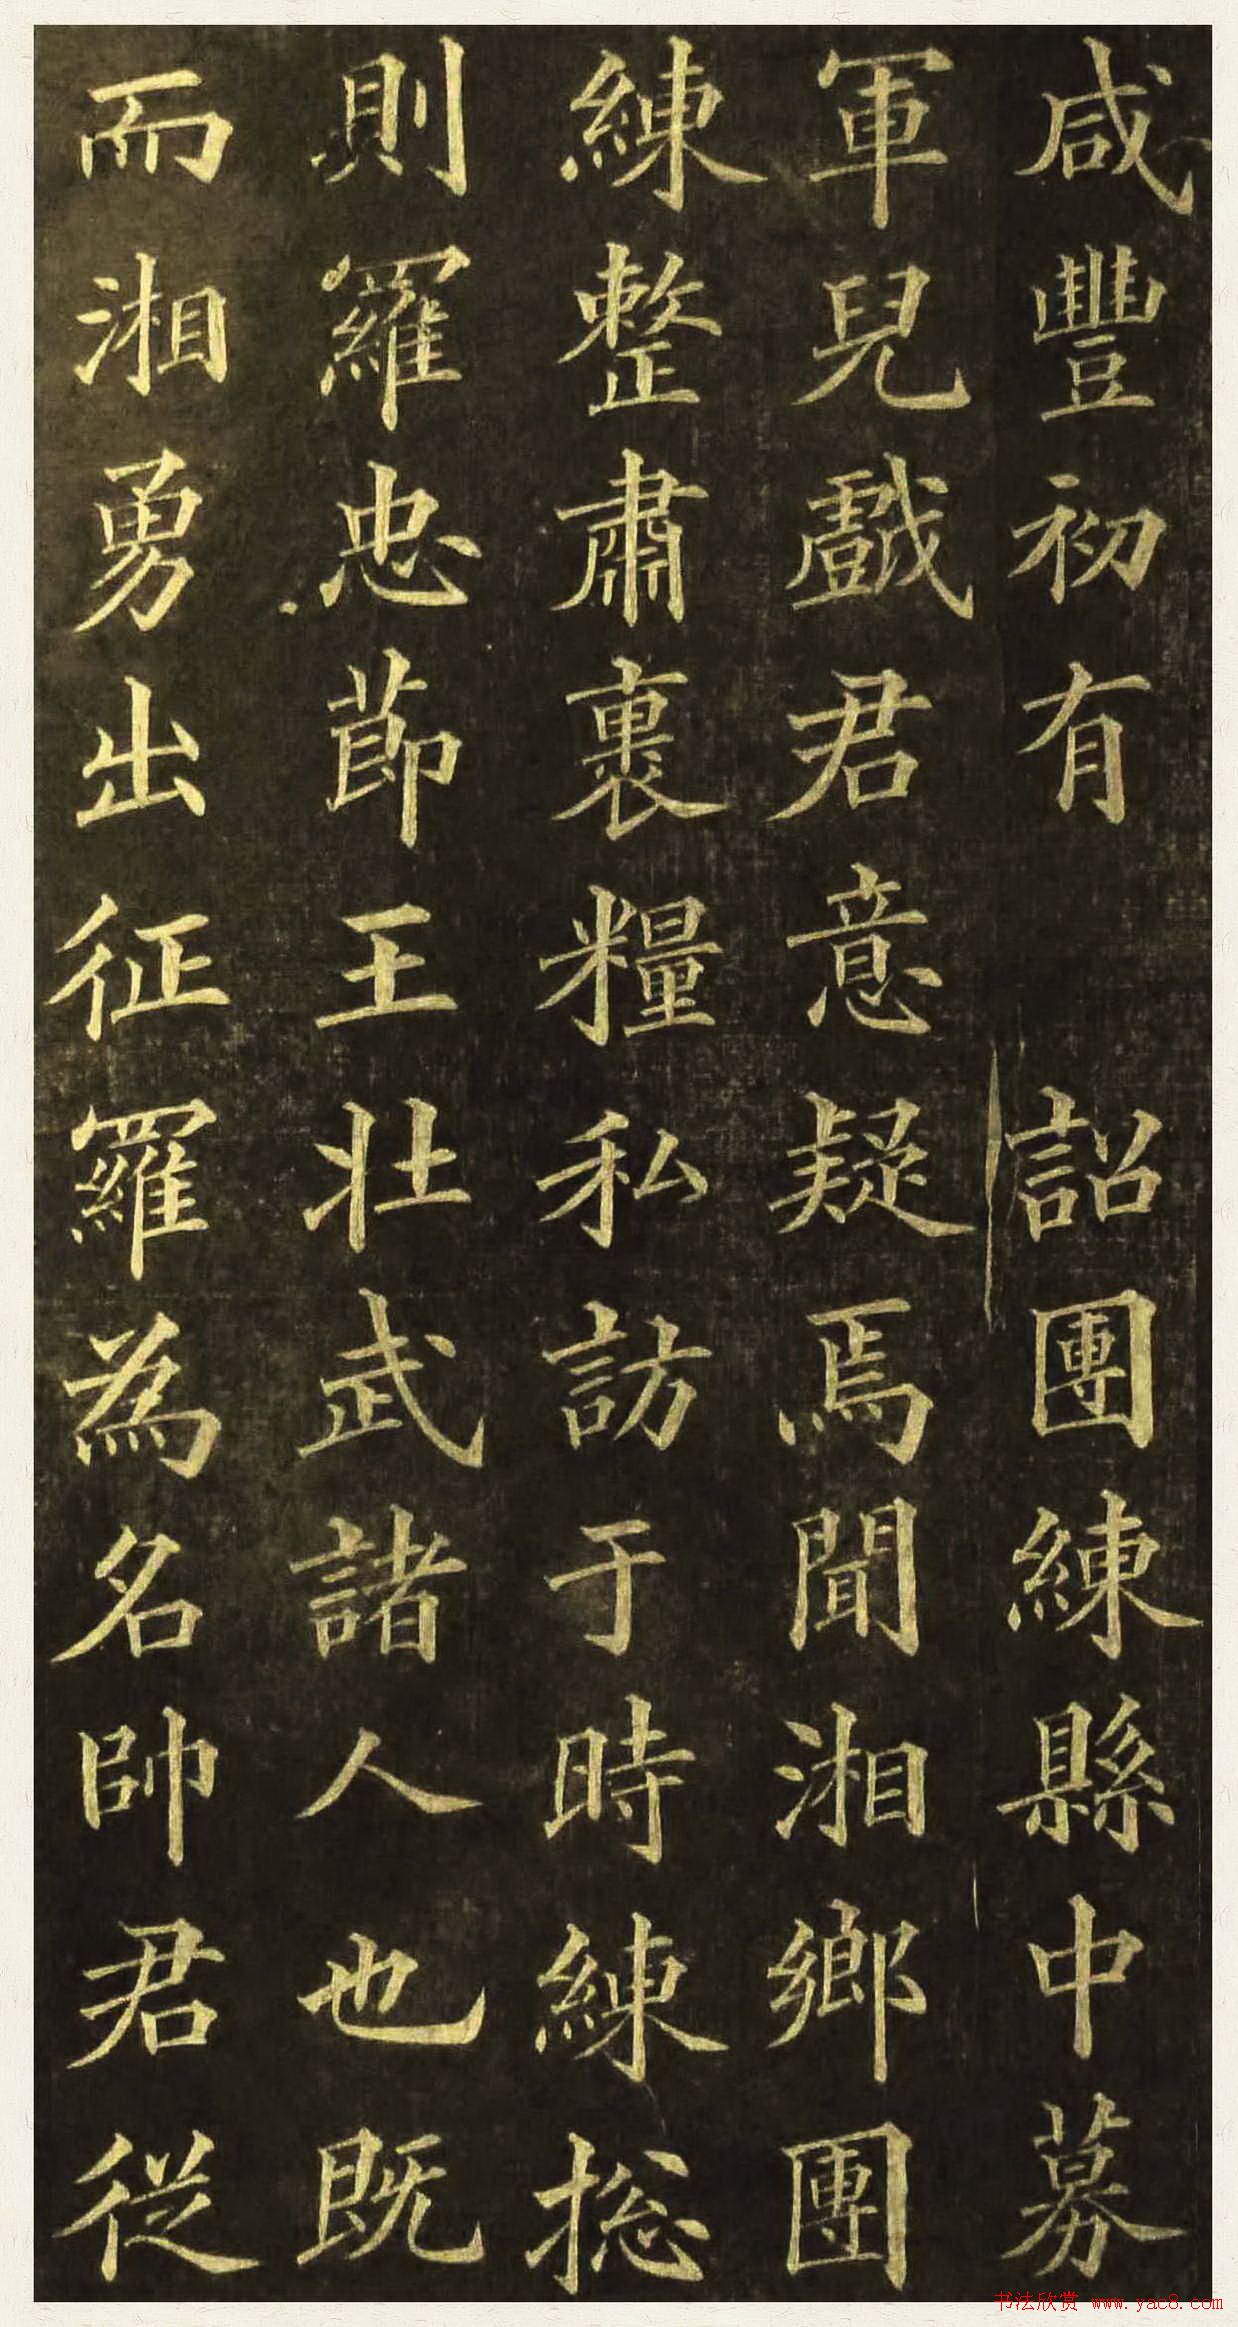 咸豐初有 詔團練縣中募
軍兒戲君意疑焉聞湘鄉團
練整肅裹糧私訪于時練揔
則羅忠節王壯武諸人也既
而湘勇出征羅為名帥君從
书法欣赏 www.yac8.com